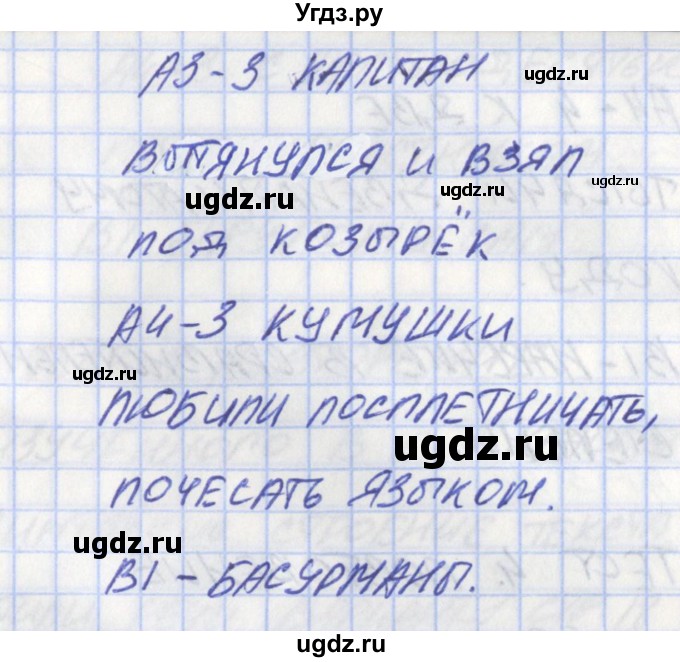 Угдз.ру
А3-3 КАПИТАН
ugdz.ru
ВЫТЯНУЛСЯ И ВЗЯЛ
ugdz.ru
ugdz.ru
ugdz.ru
ПОД КОЗЫРЁК
ugdz.ru
А4-3 КУМУШКИ
ugdz.ru
ЛЮБИЛИ ПОСПЛЕТНИЧАТЬ,
ugdz.ru
ПОЧЕСАТЬ ЯЗЫКОМ.
ugdz.ru
В1 - БАСУРМАНЫ.
ugdz.ru
ugdz.ru